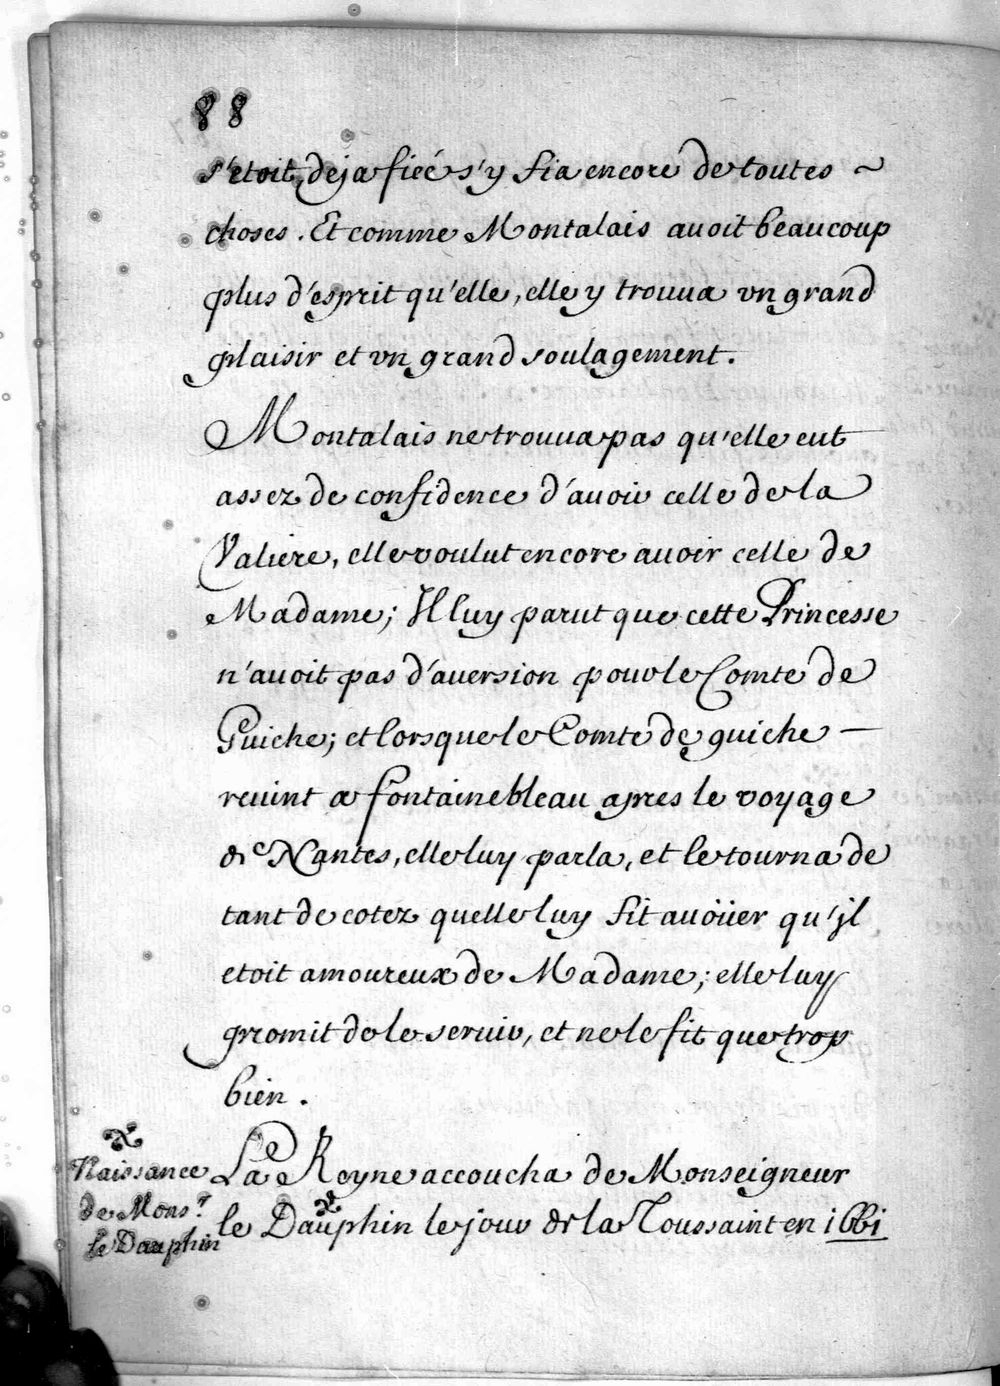 88
s'etoit deja fiée s'y fia encore de toutes ~
choses. Et comme Montalais avoit beaucoup
plus d'esprit qu'elle, elle y trouva vn grand
plaisir et vn grand soulagement.
Montalais ne trouva pas qu'elle eut
assez de confidence d'avoir celle de la
Valiere, elle voulut encore avoir celle de
Madame; Il luy parut que cette Princesse
n'avoit pas d'aversion pour le Comte de
Guiche; et lors que le Comte de guiche —
revint a fontainebleau apres le voyage
de Nantes, elle luy parla, et le tourna de
tant de cotez quelle luy fit avoüer qu'jl
etoit amoureux de Madame; elle luy
promit de le servir, et ne le fit que trop
bien.
La Royne accoucha de Monseigneur
le Dauphin le jour de la Toussaint en 1661
Naissance
de Mons.r
le Dauphin